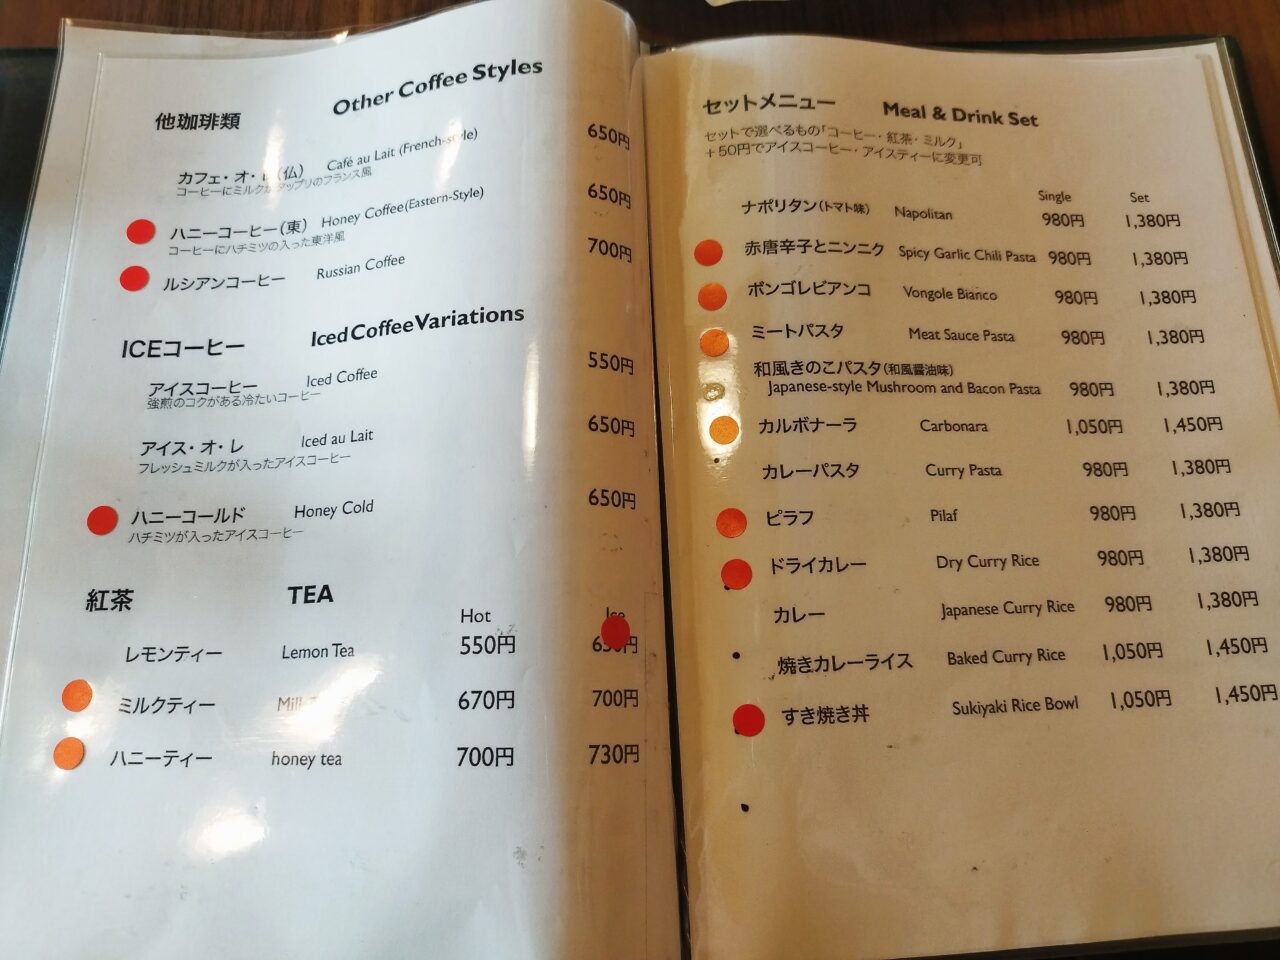 他珈琲類 Other Coffee Styles
カフェ・オ・ (仏) Café au Lait (French-style) 650円
コーヒーにミルクが タップリのフランス風
ハニーコーヒー(東) Honey Coffee(Eastern-Style) 650円
コーヒーにハチミツの入った東洋風
ルシアンコーヒー Russian Coffee 700円
ICEコーヒー Iced Coffee Variations
アイスコーヒー Iced Coffee 550円
強煎のコクがある冷たいコーヒー
アイス・オ・レ Iced au Lait 650円
フレッシュミルクが入ったアイスコーヒー
ハニーコールド Honey Cold 650円
ハチミツが入ったアイスコーヒー
紅茶 TEA
Hot Ice
レモンティー Lemon Tea 550円
ミルクティー 670円 700円
ハニーティー honey tea 700円 730円
セットメニュー Meal & Drink Set
セットで選べるもの「コーヒー・紅茶・ミルク」
+50円でアイスコーヒー・アイスティーに変更可
Single Set
ナポリタン(トマト味) Napolitan 980円 1,380円
赤唐辛子とニンニク Spicy Garlic Chili Pasta 980円 1,380円
ボンゴレビアンコ Vongole Bianco 980円 1,380円
ミートパスタ Meat Sauce Pasta 980円 1,380円
和風きのこパスタ(和風醤油味)
Japanese-style Mushroom and Bacon Pasta 980円 1,380円
カルボナーラ Carbonara 1,050円 1,450円
カレーパスタ Curry Pasta 980円 1,380円
ピラフ Pilaf 980円 1,380円
ドライカレー Dry Curry Rice 980円 1,380円
カレー Japanese Curry Rice 980円 1,380円
焼きカレーライス Baked Curry Rice 1,050円 1,450円
すき焼き丼 Sukiyaki Rice Bowl 1,050円 1,450円